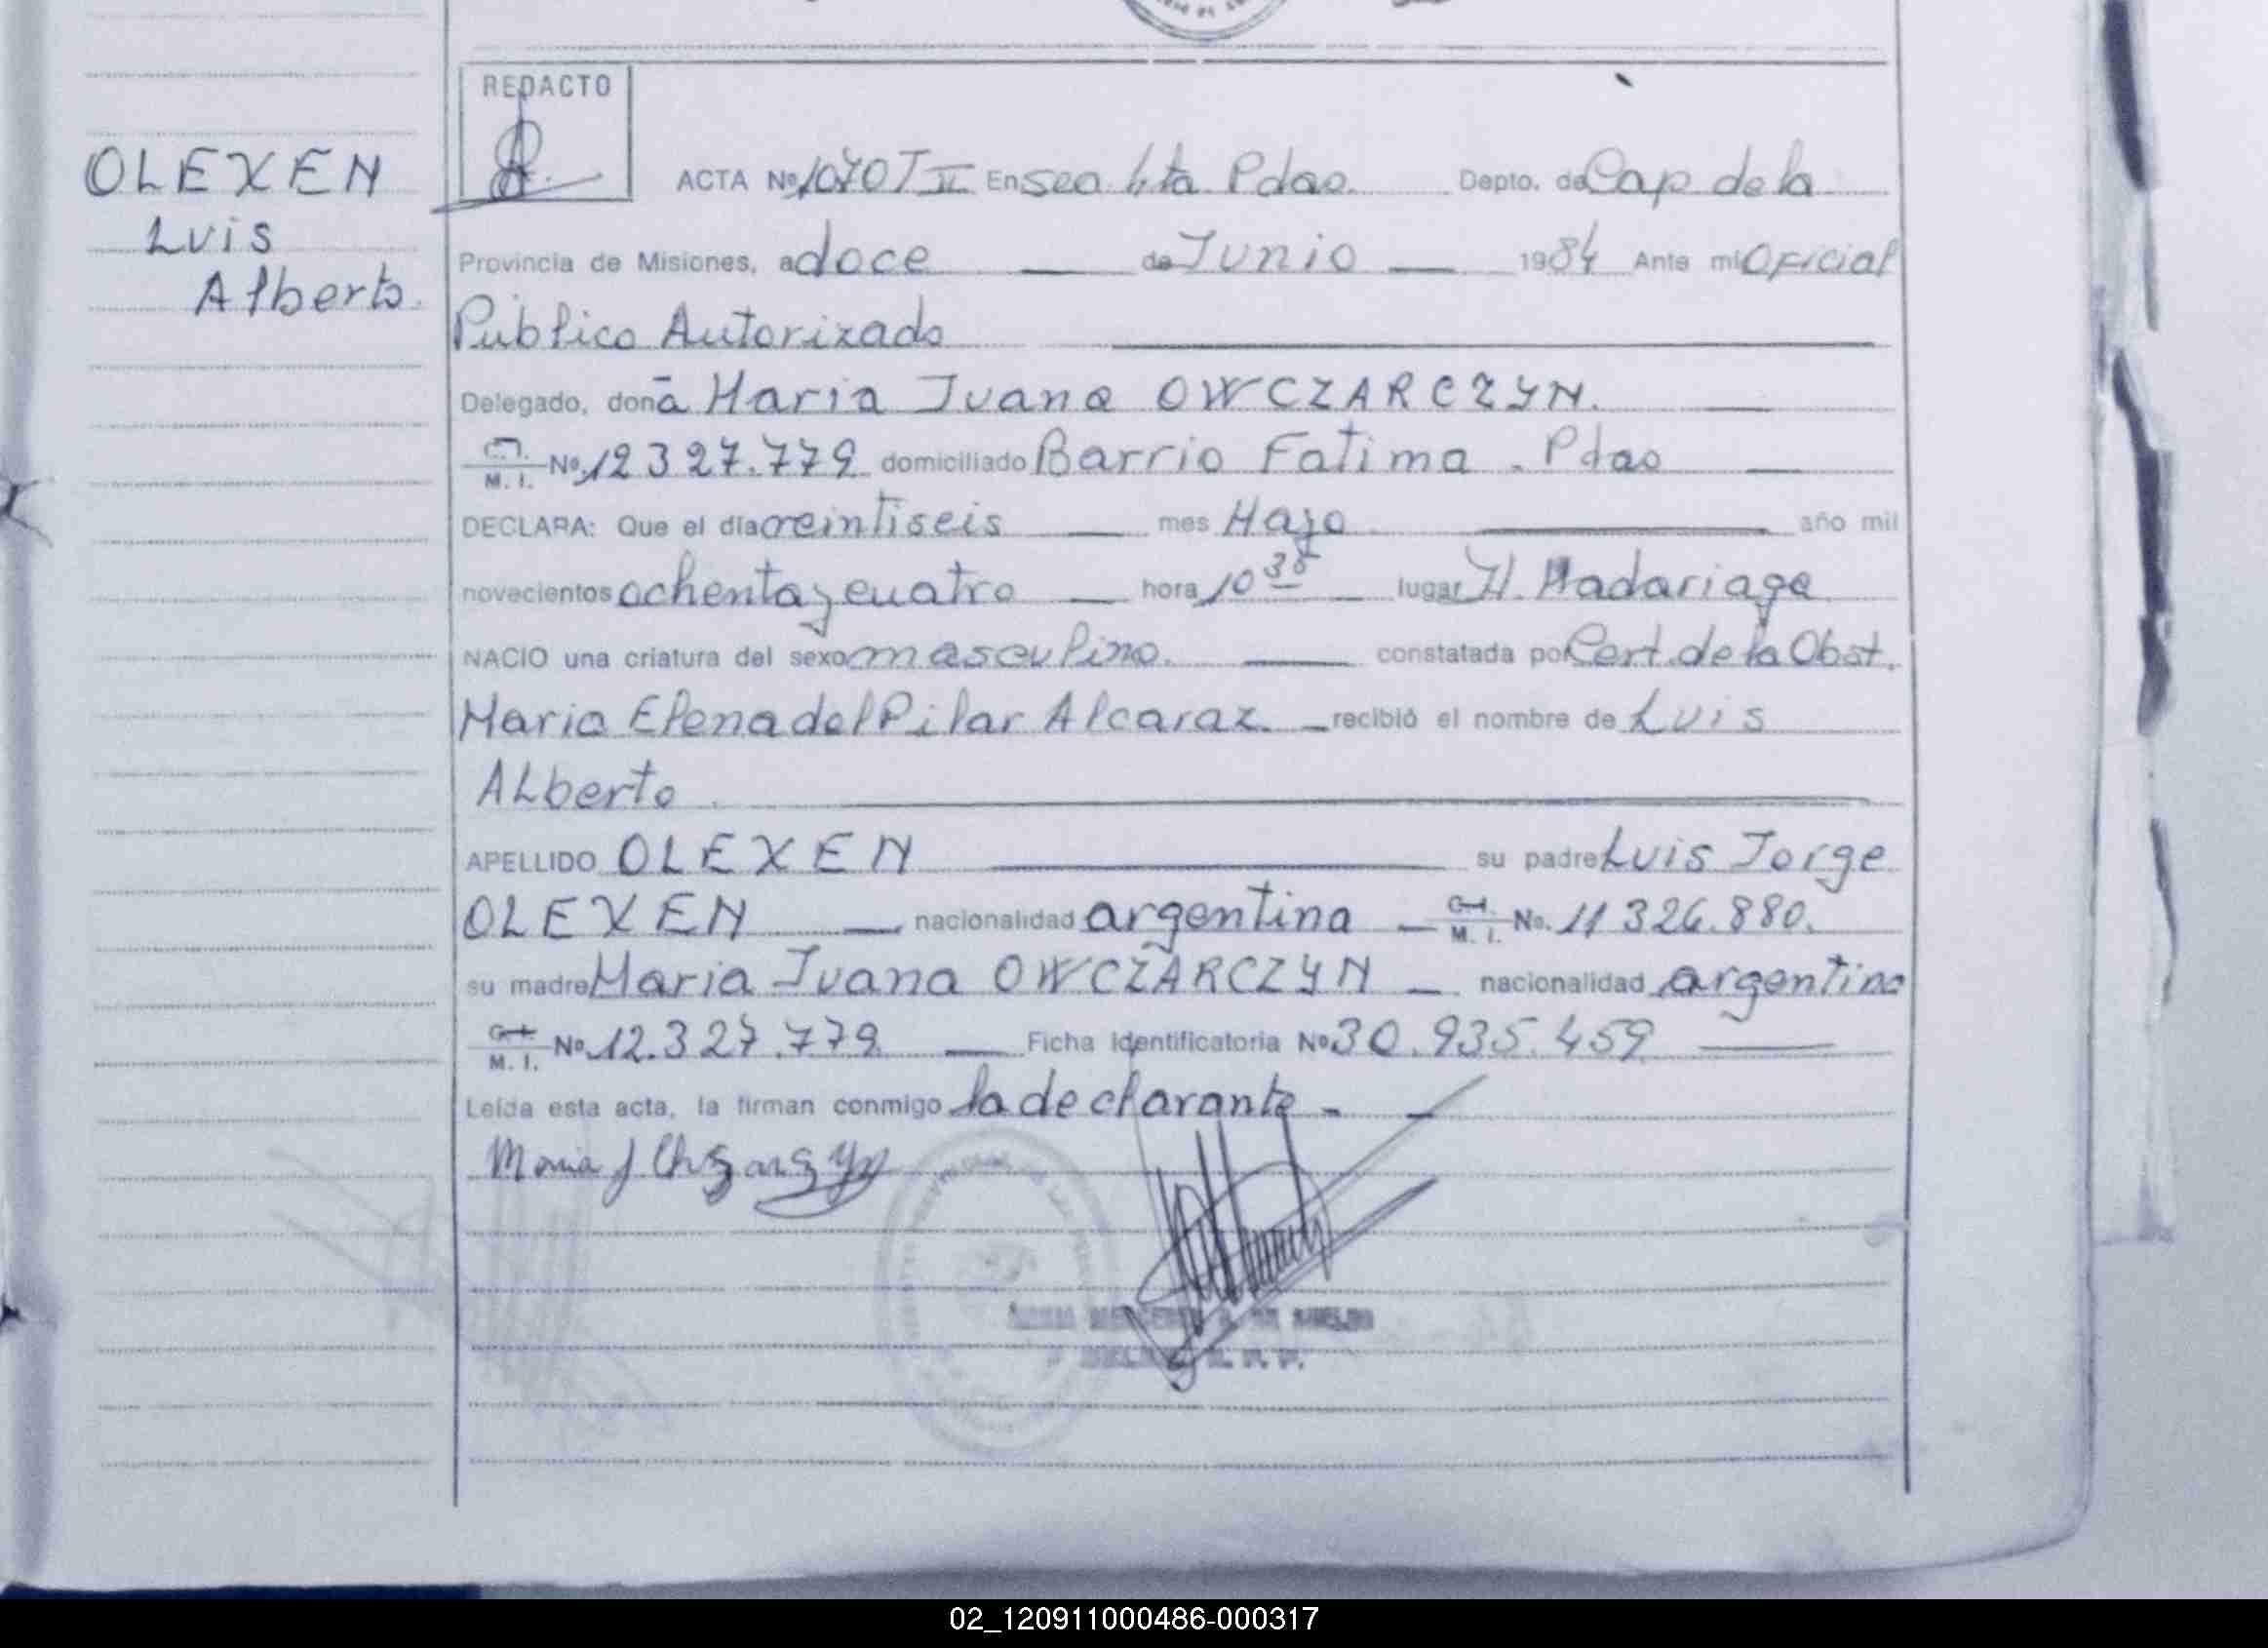 REDACTO
OLEXEN
Luis
Alberto.
ACTA Nº 1070 T II En Sec 4ta Pdas. Depto. de Cap de la
Provincia de Misiones, a doce de Junio 1984 Ante mi Oficial
Público Autorizado
Delegado, doña Maria Juana OWCZARCZYN.
C.I. M. I. Nº 12 327.779 domiciliado Barrio Fatima - Pdas
DECLARA: Que el día veintiseis mes Mayo año mil
novecientos ochenta y cuatro hora 10 35 lugar H. Madariaga
NACIO una criatura del sexo masculino. constatada por Cert. de la Obst.
Maria Elena del Pilar Alcaraz. recibió el nombre de Luis
ALberto.
APELLIDO OLEXEN su padre Luis Jorge
OLEXEN nacionalidad argentina C.I. M. I. No. 11 326.880.
su madre Maria Juana OWCZARCZYN nacionalidad argentina
C.I. M. I. Nº 12.327.779 Ficha identificatoria Nº 30.935.459
Leída esta acta, la firman conmigo la declarante -
Maria J
02_120911000486-000317